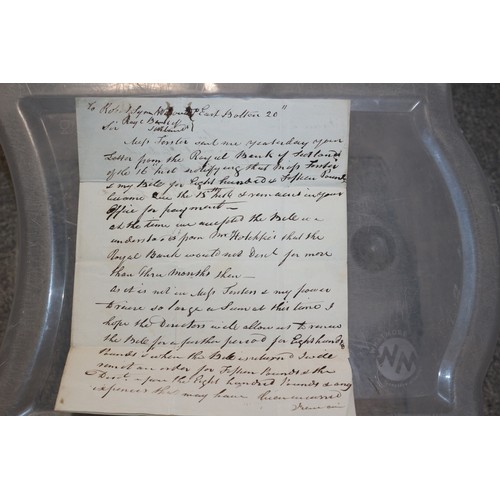 To Robt Lyon East Bolton 20"
Royl Bank of
Sir Scotland
Miss Forster sent me yesterday your
Letter from the Royal Bank of Scotland
of the 16 Inst notifying that Miss Forster
& my Bill for Eight hundred & Fifteen Pounds
became due the 15th Inst & remains in your
Office for payment —
at the time we accepted the Bill we
understood from Mr Hotchkis that the
Royal Bank would not Disct for more
than three months then —
as it is not in Miss Forsters & my power
to raise so large a Sum at this time I
hope the Directors will allow us to renew
the Bill for a further period for Eight hundd
Pounds & when the Bill is returned I will
remit an order for Fifteen Pounds & the
Disct upon the Eight hundred Pounds & any
expences that may have been incurred
I remain
WN